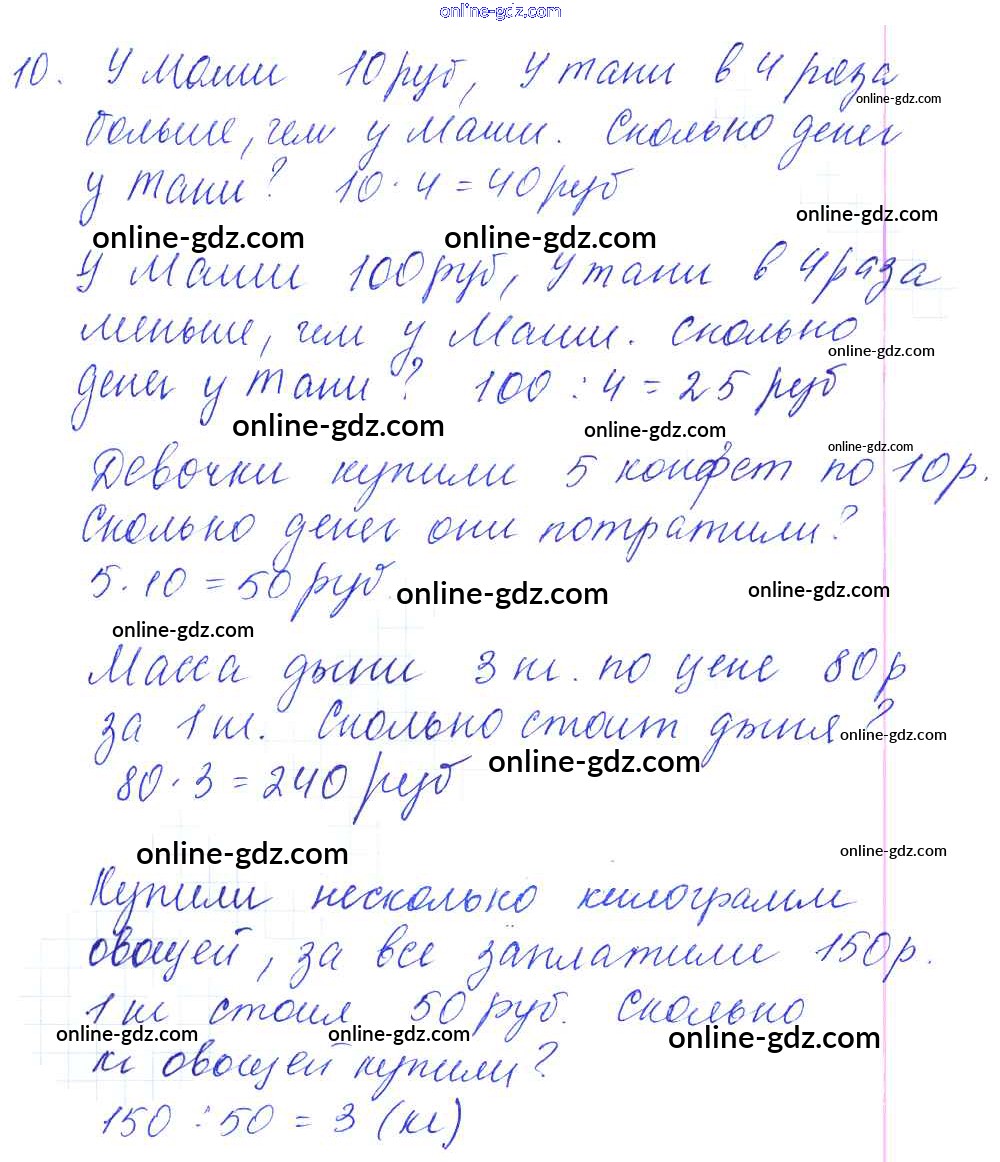 online-gdz.com
10. У Маши 10 руб, У тани в 4 раза
online-gdz.com
больше, чем у Маши. Сколько денег
у тани? 10 · 4 = 40 руб
online-gdz.com
online-gdz.com online-gdz.com
У Маши 100 руб, У тани в 4 раза
меньше, чем у Маши. Сколько
online-gdz.com
денег у тани? 100 : 4 = 25 руб
online-gdz.com online-gdz.com
online-gdz.com
Девочки купили 5 конфет по 10 р.
Сколько денег они потратили?
5 · 10 = 50 руб.
online-gdz.com online-gdz.com
online-gdz.com
Масса дыни 3 кг. по цене 80 р
за 1 кг. Сколько стоит дыня?
online-gdz.com
80 · 3 = 240 руб
online-gdz.com
online-gdz.com online-gdz.com
Купили несколько килограмм
овощей, за все заплатили 150 р.
1 кг стоил 50 руб. Сколько
online-gdz.com online-gdz.com online-gdz.com
кг овощей купили?
150 : 50 = 3 (кг)